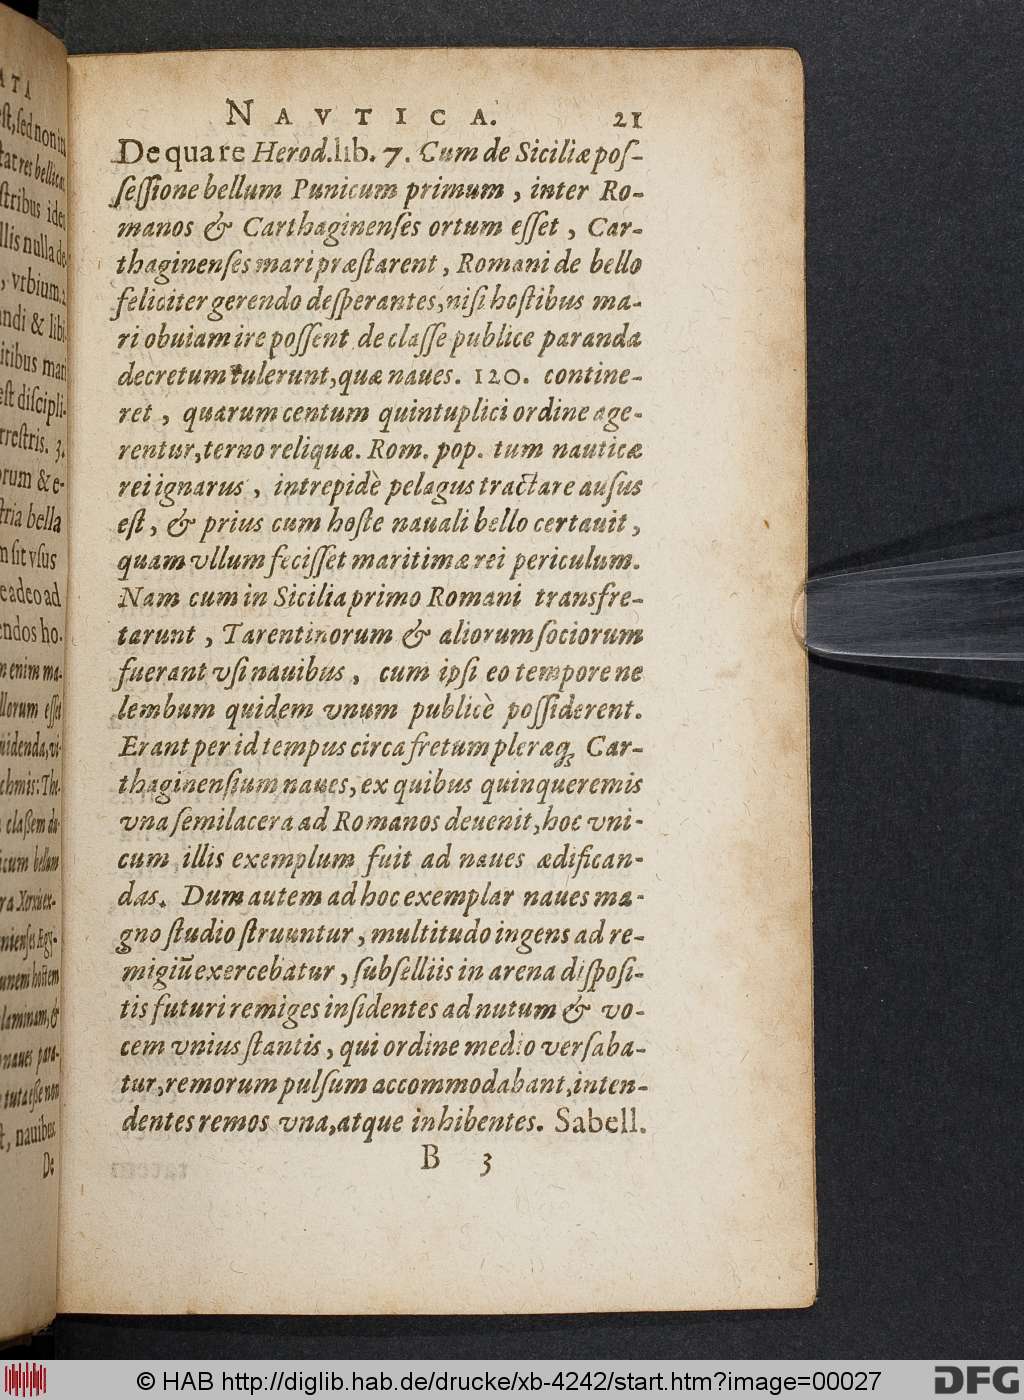 ATA
est, sed non in
tat res bellica.
stribus
llis nulla de
, vrbium. 2.
andi & libi
itibus mari
est discipli-
rrestris. 3.
orum & e-
stria bella
m sit vsus
eadeo ad
endos ho-
m enim ma-
llorum esset
uidenda, vi-
chmis: The-
classem du-
icum bellum
ra Xerxis ex-
nienses Egy-
unem hostem
laminam, &
naues para-
tuta esse non
st, nauibus
De
NAVTICA. 21
De qua re Herod. lib. 7. Cum de Siciliæ pos-
sessione bellum Punicum primum, inter Ro-
manos & Carthaginenses ortum esset, Car-
thaginenses mari præstarent, Romani de bello
feliciter gerendo desperantes, nisi hostibus ma-
ri obuiam ire possent de classe publice paranda
decretum tulerunt, quæ naues. 120. contine-
ret, quarum centum quintuplici ordine age-
rentur, terno reliquæ. Rom. pop. tum nauticæ
rei ignarus, intrepidè pelagus tractare ausus
est, & prius cum hoste nauali bello certauit,
quam vllum fecisset maritimæ rei periculum.
Nam cum in Sicilia primo Romani transfre-
tarunt, Tarentinorum & aliorum sociorum
fuerant vsi nauibus, cum ipsi eo tempore ne
lembum quidem vnum publicè possiderent.
Erant per id tempus circa fretum pleræq; Car-
thaginensium naues, ex quibus quinqueremis
vna semilacera ad Romanos deuenit, hoc vni-
cum illis exemplum fuit ad naues ædifican-
das. Dum autem ad hoc exemplar naues ma-
gno studio struuntur, multitudo ingens ad re-
migiū exercebatur, subselliis in arena disposi-
tis futuri remiges insidentes ad nutum & vo-
cem vnius stantis, qui ordine medio versaba-
tur, remorum pulsum accommodabant, inten-
dentes remos vna, atque inhibentes. Sabell.
B 3
© HAB http://diglib.hab.de/drucke/xb-4242/start.htm?image=00027
DFG